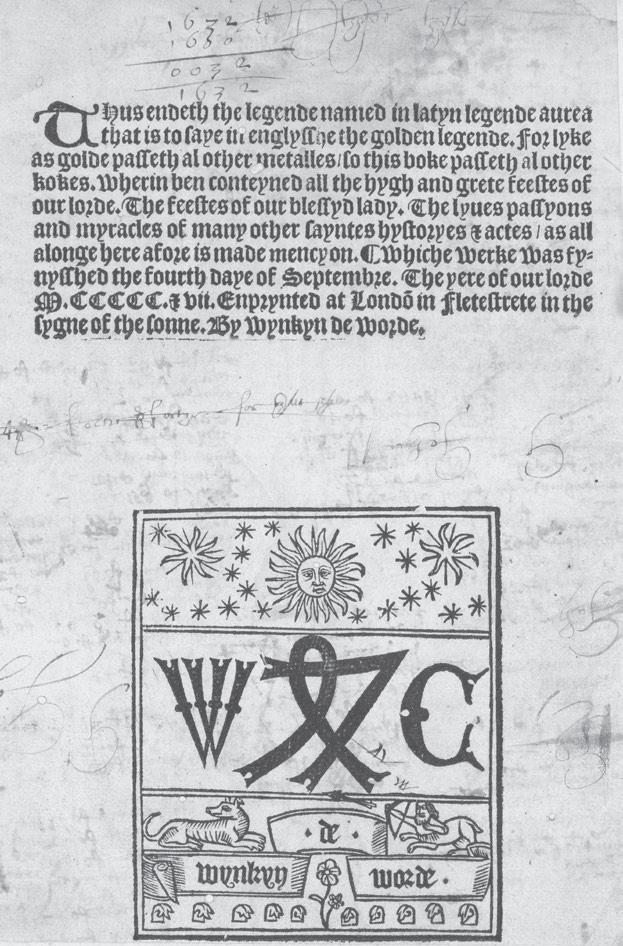 1632
1630
0032
1632
Thus endeth the legende named in latyn legende aurea
that is to saye in englysshe the golden legende. For lyke
as golde passeth al other metalles/so this boke passeth al other
bokes. Wherin ben conteyned all the hygh and grete feestes of
our lorde. The feestes of our blessyd lady. The lyues passyons
and myracles of many other sayntes hystoryes & actes/as all
alonge here afore is made mencyon. ¶Whiche werke was fy-
nysshed the fourth daye of Septembre. The yere of our lorde
M.CCCCC.& vii. Enprynted at Londō in Fletestrete in the
sygne of the sonne. By wynkyn de worde.
W C
· de ·
wynkyn worde ·